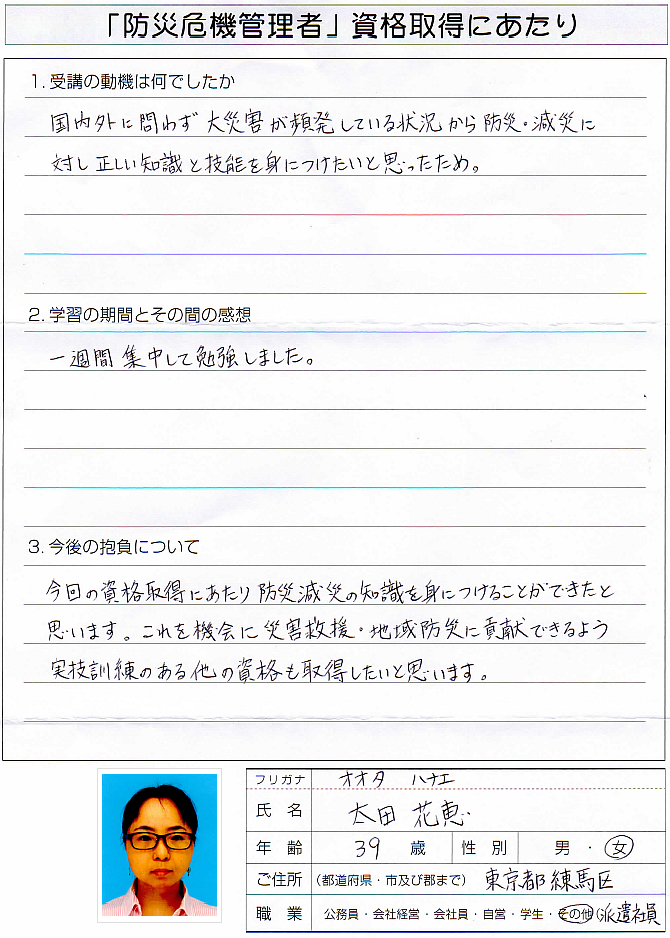 「防災危機管理者」資格取得にあたり
1. 受講の動機は何でしたか
国内外に問わず大災害が頻発している状況から防災・減災に
対し正しい知識と技能を身につけたいと思ったため。
2. 学習の期間とその間の感想
一週間集中して勉強しました。
3. 今後の抱負について
今回の資格取得にあたり防災減災の知識を身につけることができたと
思います。これを機会に災害救援・地域防災に貢献できるよう
実技訓練のある他の資格も取得したいと思います。
フリガナ オオタ ハナエ
氏 名 太田 花恵
年 齢 39 歳 性 別 男 ・ 女
ご住所 (都道府県・市及び郡まで) 東京都練馬区
職 業 公務員・会社経営・会社員・自営・学生・その他(派遣社員